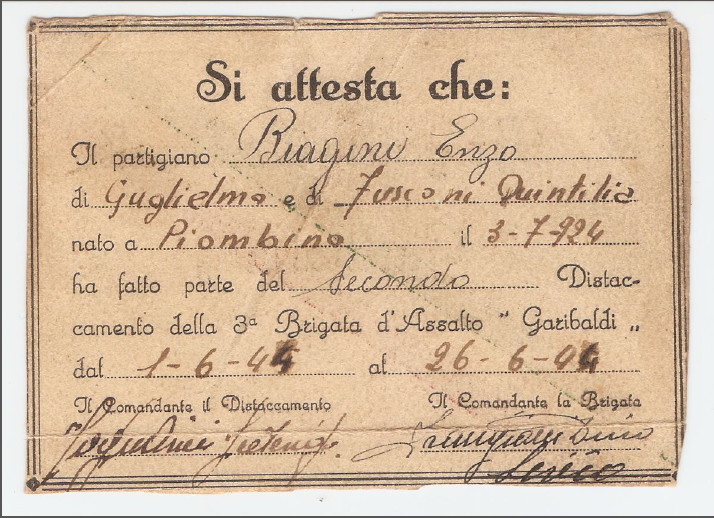 Si attesta che:
Il partigiano Biagini Enzo
di Guglielmo e di Fusconi Quintilia
nato a Piombino il 3-7-924
ha fatto parte del Secondo Distac-
camento della 3ª Brigata d'Assalto " Garibaldi „
dal 1-6-44 al 26-6-44
Il Comandante il Distaccamento Il Comandante la Brigata